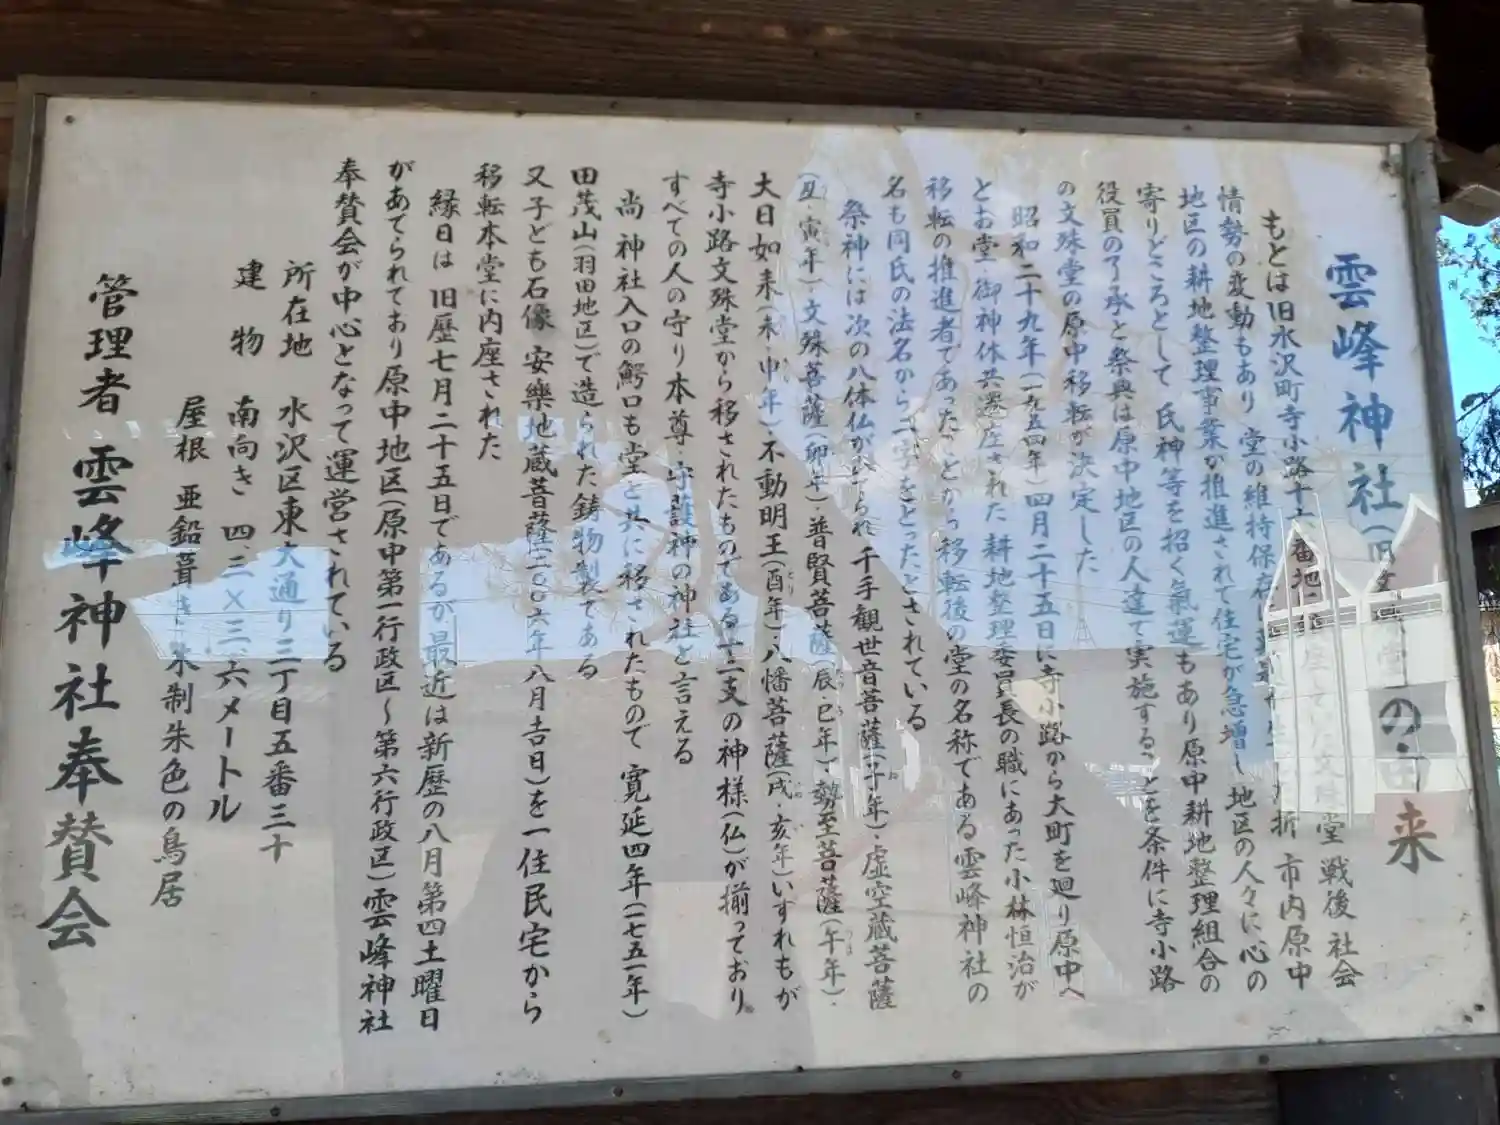 雲峰神社(旧 堂の由来
もとは旧水沢町寺小路十六番地に 座していた文殊堂 戦後 社会
情勢の変動もあり 堂の維持保存に 折 市内原中
地区の耕地整理事業が推進されて住宅が急増し 地区の人々に心の
寄りどころとして 氏神等を招く氣運もあり原中耕地整理組合の
役員の了承と祭典は原中地区の人達で実施することを条件に寺小路
の文殊堂の原中移転が決定した
昭和二十九年(一九五四年)四月二十五日に寺小路から大町を廻り原中へ
とお堂・御神体共遷座された 耕地整理委員長の職にあった小林恒治が
移転の推進者であったことから移転後の堂の名称である雲峰神社の
名も同氏の法名から一字をとったとされている
祭神には次の八体仏が祀られ 千手観世音菩薩(子年)・虚空蔵菩薩
(丑・寅年)・文殊菩薩(卯年)・普賢菩薩(辰・巳年)・勢至菩薩(午年)・
大日如来(未・申年)・不動明王(酉年)・八幡菩薩(戌・亥年)いずれもが
寺小路文殊堂から移されたものである 十二支の神様(仏)が揃っており
すべての人の守り本尊・守護神の神社と言える
尚 神社入口の鰐口も堂と共に移されたもので 寛延四年(一七五一年)
田茂山(羽田地区)で造られた鋳物製である
又子ども石像 安樂地蔵菩薩(二〇〇六年八月吉日)を一住民宅から
移転本堂に内座された
縁日は 旧歴七月二十五日であるが最近は新歴の八月第四土曜日
があてられており原中地区(原中第一行政区～第六行政区)雲峰神社
奉賛会が中心となって運営されている
所在地 水沢区東大通り三丁目五番三十
建物 南向き 四、三×三、六メートル
屋根 亜鉛葺き 朱制朱色の鳥居
管理者 雲峰神社奉賛会